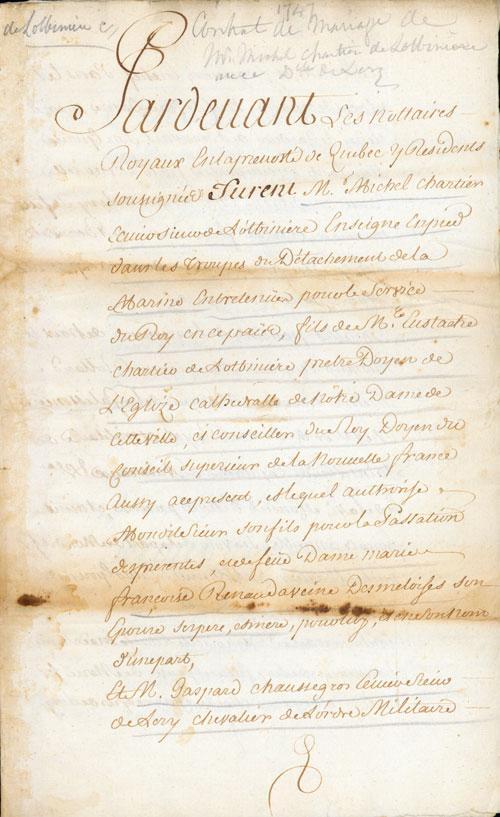 de Lotbiniere
1747
Contrat de Mariage de
Mr Michel Chartier de Lotbiniere
avec Dlle de Lery
Pardevant Les Nottaires
Royaux En la prevosté de Quebec y Residents
soussignés furent M. Michel Chartier
Ecuier sieur de Lotbiniere Enseigne En pied
dans les Troupes du Détachement de la
Marine Entretenües pour le Service
du Roy en ce païs, fils de Me Eustache
chartier de Lotbiniere prétre Doyen de
L'Eglize cathedralle de Nôtre Dame de
cette ville, et conseiller du Roy Doyen du
Conseil superieur de la Nouvelle france
Aussy a ce present, lequel authorise
Mondit Sieur son fils pour la Passation
des presentes, et de feüe Dame marie
françoise Renaud Daveine Desmeloises son
Epouse ses pere, et mere, pour luy, et en son nom
D'une part,
Et M. Gaspard chaussegros Ecuier Sieur
de Lery chevalier de L'ordre Militaire